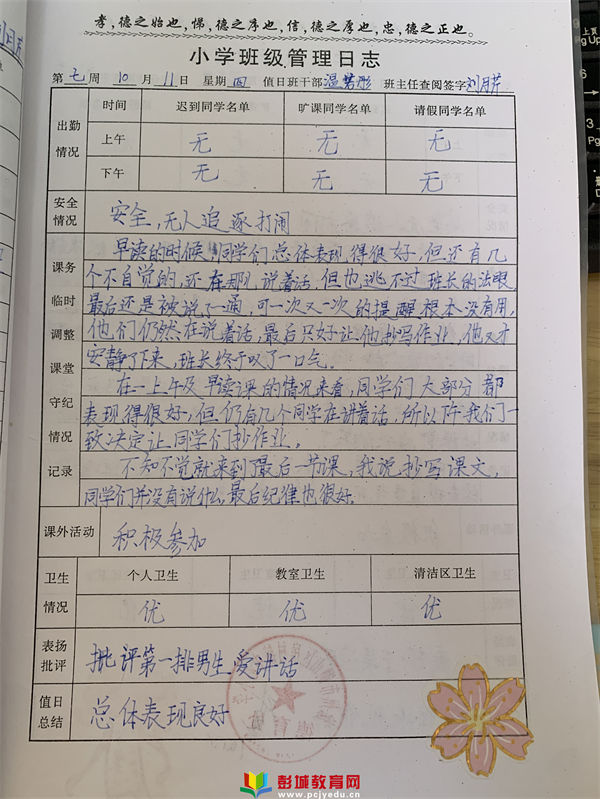 孝,德之始也,悌,德之序也,信,德之厚也,忠,德之正也。
小学班级管理日志
第七周 10月11日 星期四 值日班干部温若彤 班主任查阅签字刘月芹
出勤情况 时间 迟到同学名单 旷课同学名单 请假同学名单
上午 无 无 无
下午 无 无 无
安全情况 安全,无人追逐打闹
课务临时调整课堂守纪情况记录
早读的时候,同学们总体表现得很好,但还有几
个不自觉的,还在那儿说着话,但也逃不过班长的法眼,
最后还是被说了一通,可一次又一次的提醒根本没有用,
他们仍然在说着话,最后只好让他抄写作业,他又才
安静了下来,班长终于叹了一口气。
在一上午及早读课的情况来看,同学们大部分都
表现得很好,但仍有几个同学在讲着话,所以下午我们一
致决定让同学们抄作业。
不知不觉就来到了最后一节课,我说抄写课文,
同学们并没有说什么,最后纪律也很好。
课外活动 积极参加
卫生情况 个人卫生 教室卫生 清洁区卫生
优 优 优
表扬批评 批评第一排男生爱讲话
值日总结 总体表现良好
德育处
彭城教育网
www.pcjyedu.cn
上页
Pg Up
3